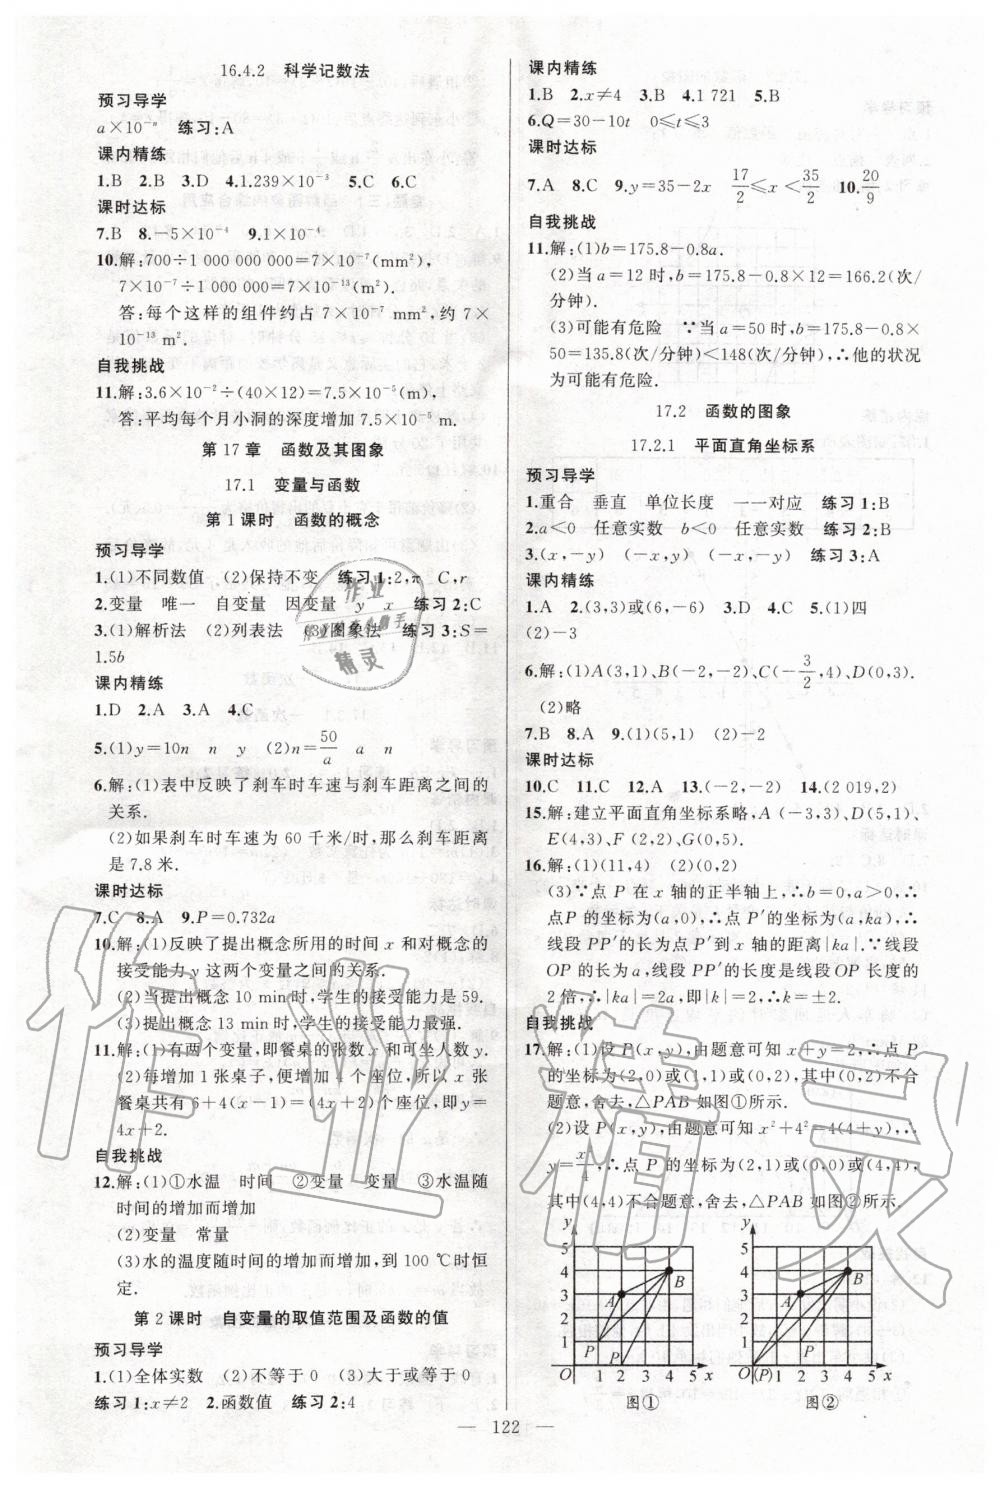 16.4.2 科学记数法
预习导学
a×10⁻ⁿ 练习:A
课内精练
1.B 2.B 3.D 4.1.239×10⁻³ 5.C 6.C
课时达标
7.B 8.-5×10⁻⁴ 9.1×10⁻⁴
10.解:700÷1 000 000 000=7×10⁻⁷(mm²),
7×10⁻⁷÷1 000 000=7×10⁻¹³(m²).
答:每个这样的组件约占 7×10⁻⁷ mm²,约 7×
10⁻¹³ m².
自我挑战
11.解:3.6×10⁻²÷(40×12)=7.5×10⁻⁵(m),
答:平均每个月小洞的深度增加 7.5×10⁻⁵ m.
第 17 章 函数及其图象
17.1 变量与函数
第 1 课时 函数的概念
预习导学
1.(1)不同数值 (2)保持不变 练习 1:2,π C,r
2.变量 唯一 自变量 因变量 y x 练习 2:C
3.(1)解析法 (2)列表法 (3)图象法 练习 3:S=
1.5b
课内精练
1.D 2.A 3.A 4.C
5.(1)y=10n n y (2)n=50/a a n
6.解:(1)表中反映了刹车时车速与刹车距离之间的
关系.
(2)如果刹车时车速为 60 千米/时,那么刹车距离
是 7.8 米.
课时达标
7.C 8.A 9.P=0.732a
10.解:(1)反映了提出概念所用的时间 x 和对概念的
接受能力 y 这两个变量之间的关系.
(2)当提出概念 10 min时,学生的接受能力是 59.
(3)提出概念 13 min 时,学生的接受能力最强.
11.解:(1)有两个变量,即餐桌的张数 x 和可坐人数 y.
(2)每增加 1 张桌子,便增加 4 个座位,所以 x 张
餐桌共有 6+4(x-1)=(4x+2)个座位,即y=
4x+2.
自我挑战
12.解:(1)①水温 时间 ②变量 变量 ③水温随
时间的增加而增加
(2)变量 常量
(3)水的温度随时间的增加而增加,到 100 ℃时恒
定.
第 2 课时 自变量的取值范围及函数的值
预习导学
1.(1)全体实数 (2)不等于 0 (3)大于或等于 0
练习 1:x≠2 2.函数值 练习 2:4
课内精练
1.B 2.x≠4 3.B 4.1 721 5.B
6.Q=30-10t 0≤t≤3
课时达标
7.A 8.C 9.y=35-2x 17/2≤x<35/2 10.20/9
自我挑战
11.解:(1)b=175.8-0.8a.
(2)当 a=12 时,b=175.8-0.8×12=166.2(次/
分钟).
(3)可能有危险 ∵当 a=50 时,b=175.8-0.8×
50=135.8(次/分钟)<148(次/分钟),∴他的状况
为可能有危险.
17.2 函数的图象
17.2.1 平面直角坐标系
预习导学
1.重合 垂直 单位长度 一一对应 练习 1:B
2.a<0 任意实数 b<0 任意实数 练习 2:B
3.(x,-y) (-x,y) (-x,-y) 练习 3:A
课内精练
1.A 2.(3,3)或(6,-6) 3.D 4.C 5.(1)四
(2)-3
6.解:(1)A(3,1),B(-2,-2),C(-3/2,4),D(0,3).
(2)略
7.B 8.A 9.(1)(5,1) (2)-2
课时达标
10.C 11.C 12.A 13.(-2,-2) 14.(2 019,2)
15.解:建立平面直角坐标系略,A (-3,3)、D(5,1)、
E(4,3)、F (2,2)、G(0,5).
16.解:(1)(11,4) (2)(0,2)
(3)∵点 P 在 x 轴的正半轴上,∴b=0,a>0,∴
点P 的坐标为(a,0),∴点 P′的坐标为(a,ka),∴
线段 PP′的长为点 P′到 x 轴的距离|ka|.∵线段
OP 的长为a,线段 PP′的长度是线段OP 长度的
2 倍,∴|ka|=2a,即|k|=2,∴k=±2.
自我挑战
17.解:(1)设 P(x,y),由题意可知 x+y=2,∴点 P
的坐标为(2,0)或(1,1)或(0,2),其中(0,2)不合
题意,舍去,△PAB 如图①所示.
(2)设 P(x,y),由题意可知 x²+4²=4(4+y),∴
y=x²/4,∴点 P 的坐标为(2,1)或(0,0)或(4,4),
其中(4,4)不合题意,舍去,△PAB 如图②所示.
y y
5 5
4 B 4 B
3 A 3 A
2 2
1 P 1
O 1 P 2 3 4 5 x O (P) 1 2 3 4 5 x
图① 图②
— 122 —
作业
精灵
作业精灵